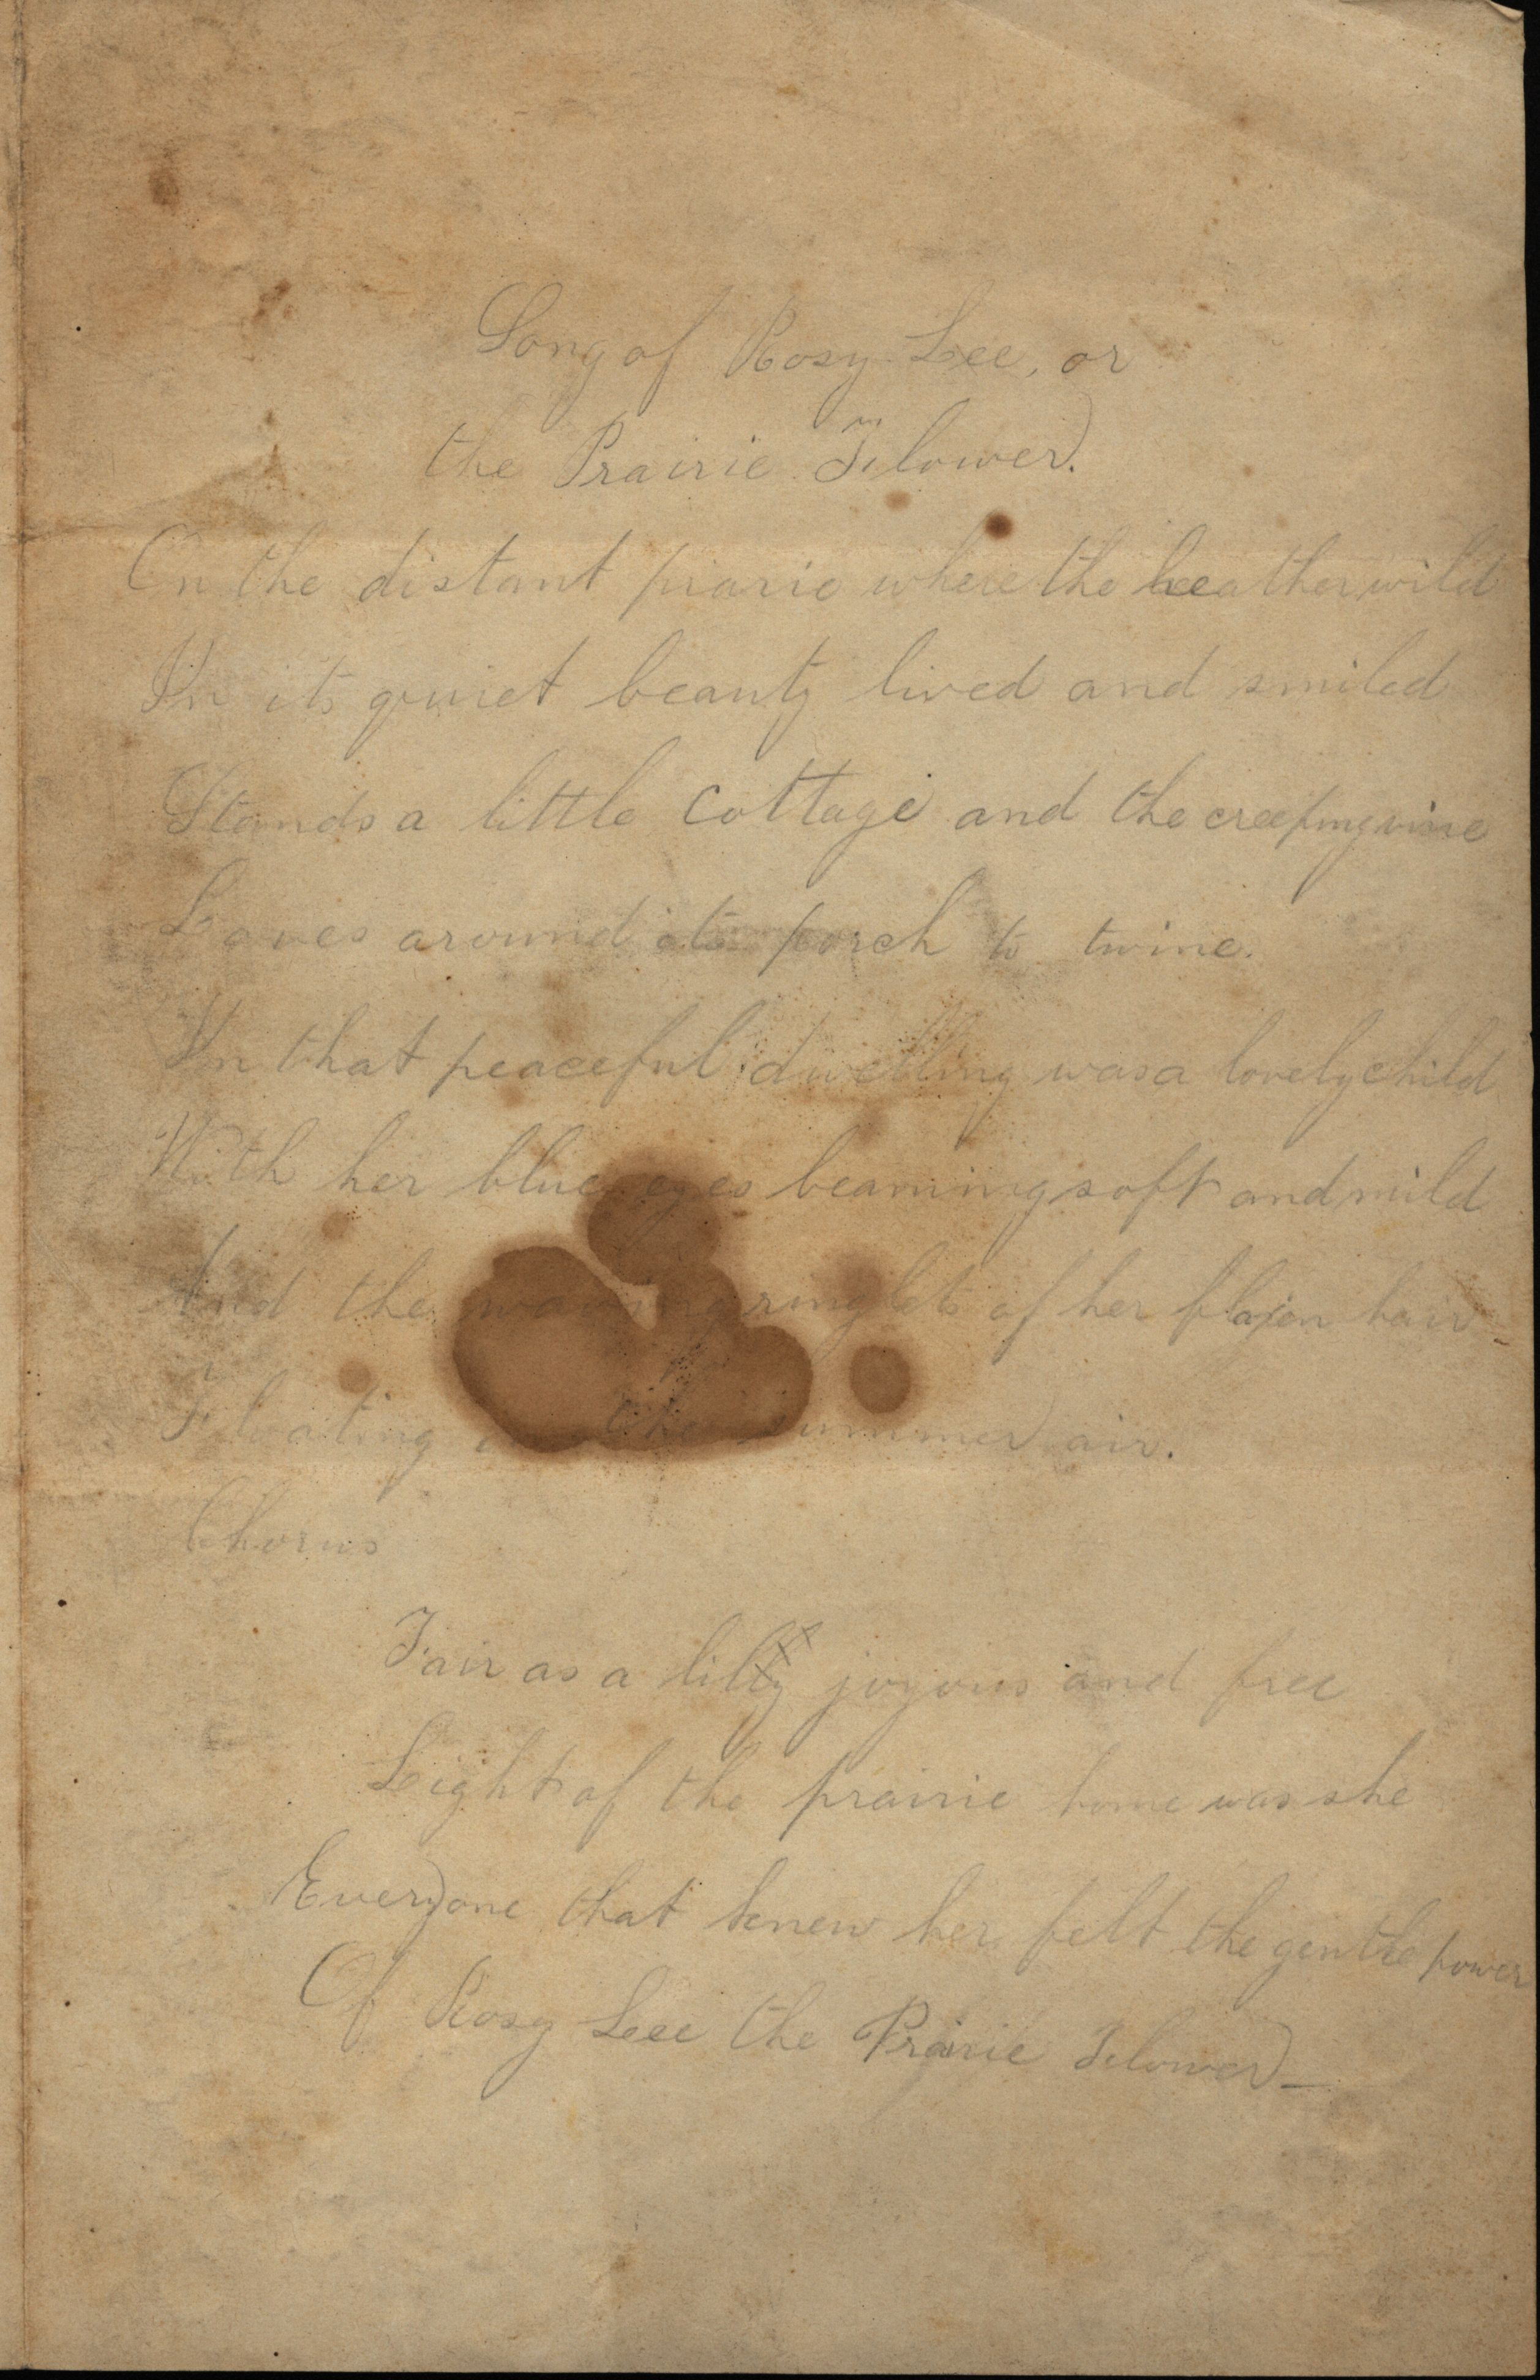 Song of Rosy Lee, or
the Prairie Flower.
On the distant prarie where the heather wild
In its quiet beauty lived and smiled
Stands a little cottage and the creeping vine
Loves around its porch to twine.
In that peaceful dwelling was a lovely child
With her blue eyes beaming soft and mild
And the waving ringlets of her flaxen hair
Floating in the summer air.
Chorus
Fair as a lilly joyous and free
Light of the prairie home was she
Everyone that knew her felt the gentle power
Of Rosy Lee the Prairie Flower—